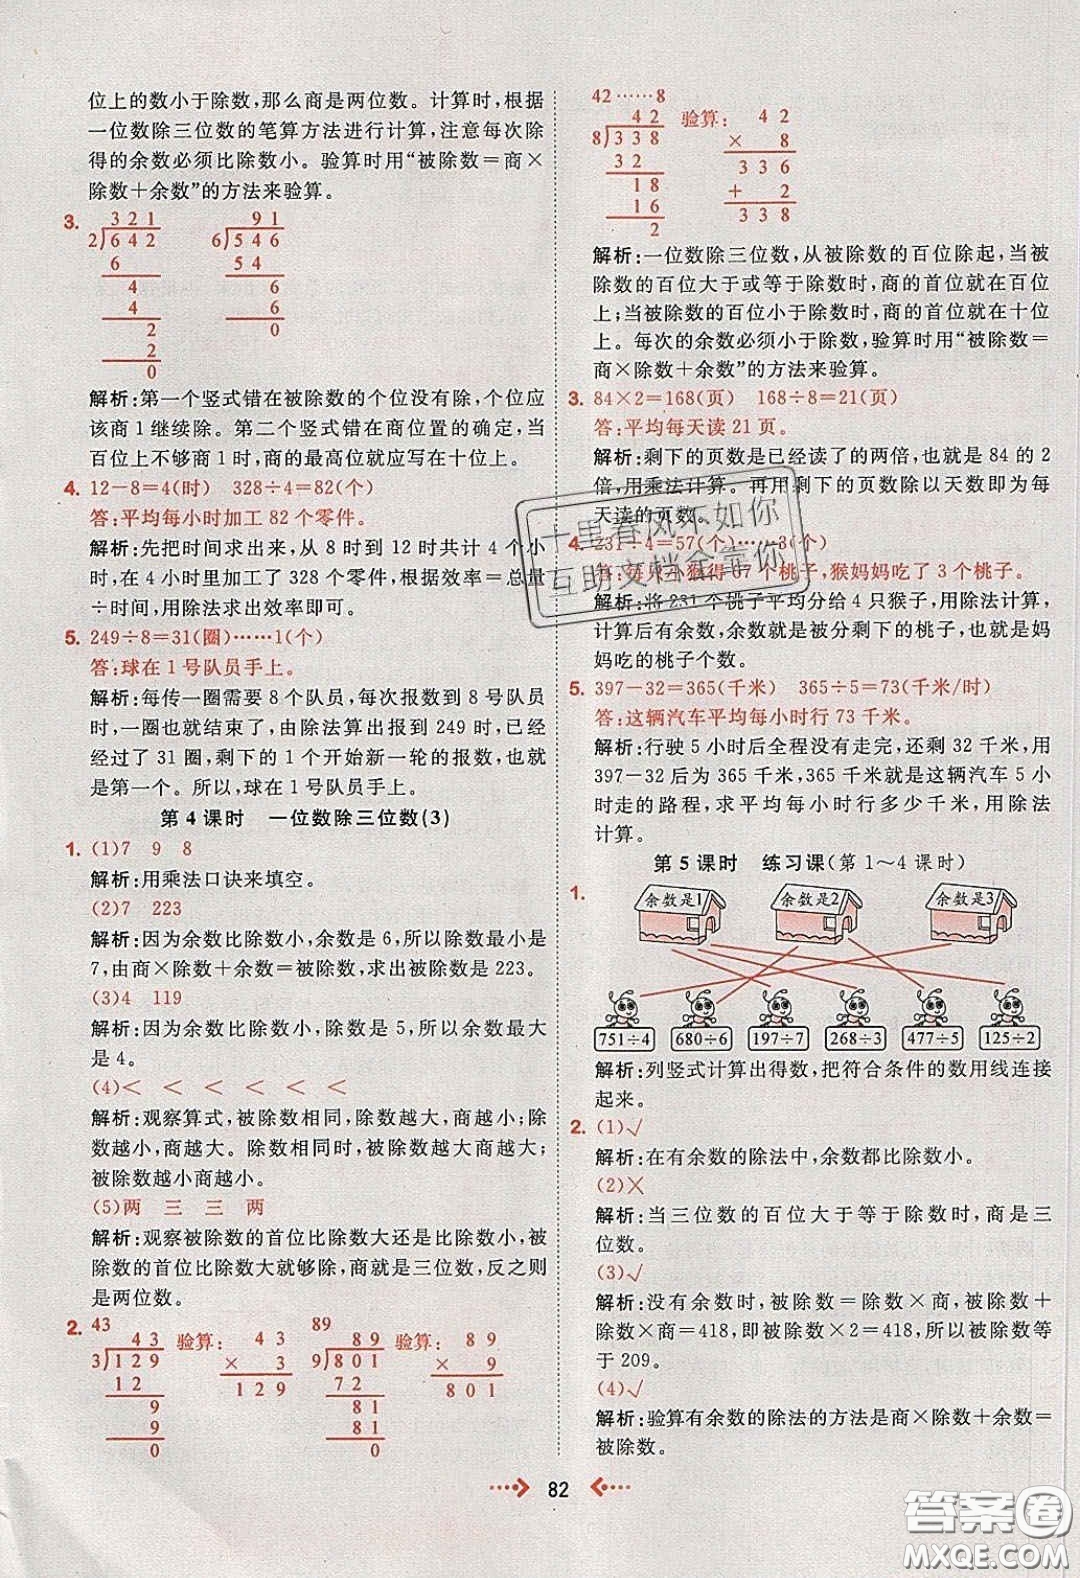 位上的数小于除数,那么商是两位数。计算时,根据
一位数除三位数的笔算方法进行计算,注意每次除
得的余数必须比除数小。验算时用“被除数=商×
除数+余数”的方法来验算。
3.
321
2)642
6
4
4
2
2
0
91
6)546
54
6
6
0
解析:第一个竖式错在被除数的个位没有除,个位应
该商1继续除。第二个竖式错在商位置的确定,当
百位上不够商1时,商的最高位就应写在十位上。
4. 12-8=4(时) 328÷4=82(个)
答:平均每小时加工82个零件。
解析:先把时间求出来,从8时到12时共计4个小
时,在4小时里加工了328个零件,根据效率=总量
÷时间,用除法求出效率即可。
5. 249÷8=31(圈)……1(个)
答:球在1号队员手上。
解析:每传一圈需要8个队员,每次报数到8号队员
时,一圈也就结束了,由除法算出报到249时,已经
经过了31圈,剩下的1个开始新一轮的报数,也就
是第一个。所以,球在1号队员手上。
第4课时 一位数除三位数(3)
1. (1)7 9 8
解析:用乘法口诀来填空。
(2)7 223
解析:因为余数比除数小,余数是6,所以除数最小是
7,由商×除数+余数=被除数,求出被除数是223。
(3)4 119
解析:因为余数比除数小,除数是5,所以余数最大
是4。
(4)< < < < <
解析:观察算式,被除数相同,除数越大,商越小;除
数越小,商越大。除数相同时,被除数越大商越大;
被除数越小商越小。
(5)两 三 三 两
解析:观察被除数的首位比除数大还是比除数小,被
除数的首位比除数大就够除,商就是三位数,反之则
是两位数。
2. 43
43
3)129
12
9
9
0
验算: 43
× 3
129
89
89
9)801
72
81
81
0
验算: 89
× 9
801
42……8
42
8)338
32
18
16
2
验算: 42
× 8
336
+ 2
338
解析:一位数除三位数,从被除数的百位除起,当被
除数的百位大于或等于除数时,商的首位就在百位
上;当被除数的百位小于除数时,商的首位就在十位
上。每次的余数必须小于除数,验算时用“被除数=
商×除数+余数”的方法来验算。
3. 84×2=168(页) 168÷8=21(页)
答:平均每天读21页。
解析:剩下的页数是已经读了的两倍,也就是84的2
倍,用乘法计算。再用剩下的页数除以天数即为平均每
天读的页数。
4. 231÷4=57(个)……3(个)
答:每只小猴得57个桃子,猴妈妈吃了3个桃子。
解析:将231个桃子平均分给4只猴子,用除法计算,
计算后有余数,余数就是被分剩下的桃子,也就是妈
妈吃的桃子个数。
5. 397-32=365(千米) 365÷5=73(千米/时)
答:这辆汽车平均每小时行73千米。
解析:行驶5小时后全程没有走完,还剩32千米,用
397-32后为365千米,365千米就是这辆汽车5小
时走的路程,求平均每小时行多少千米,用除法
计算。
第5课时 练习课(第1~4课时)
1.
余数是1 余数是2 余数是3
751÷4 680÷6 197÷7 268÷3 477÷5 125÷2
解析:列竖式计算出得数,把符合条件的数用线连接
起来。
2. (1)√
解析:在有余数的除法中,余数都比除数小。
(2)×
解析:当三位数的百位大于等于除数时,商是三
位数。
(3)√
解析:没有余数时,被除数=除数×商,被除数+
除数×商=418,即被除数×2=418,所以被除数等
于209。
(4)√
解析:验算有余数的除法的方法是商×除数+余数=
被除数。
82
十里春风不如你
互助文档全靠你
答案圈
MXQE.COM